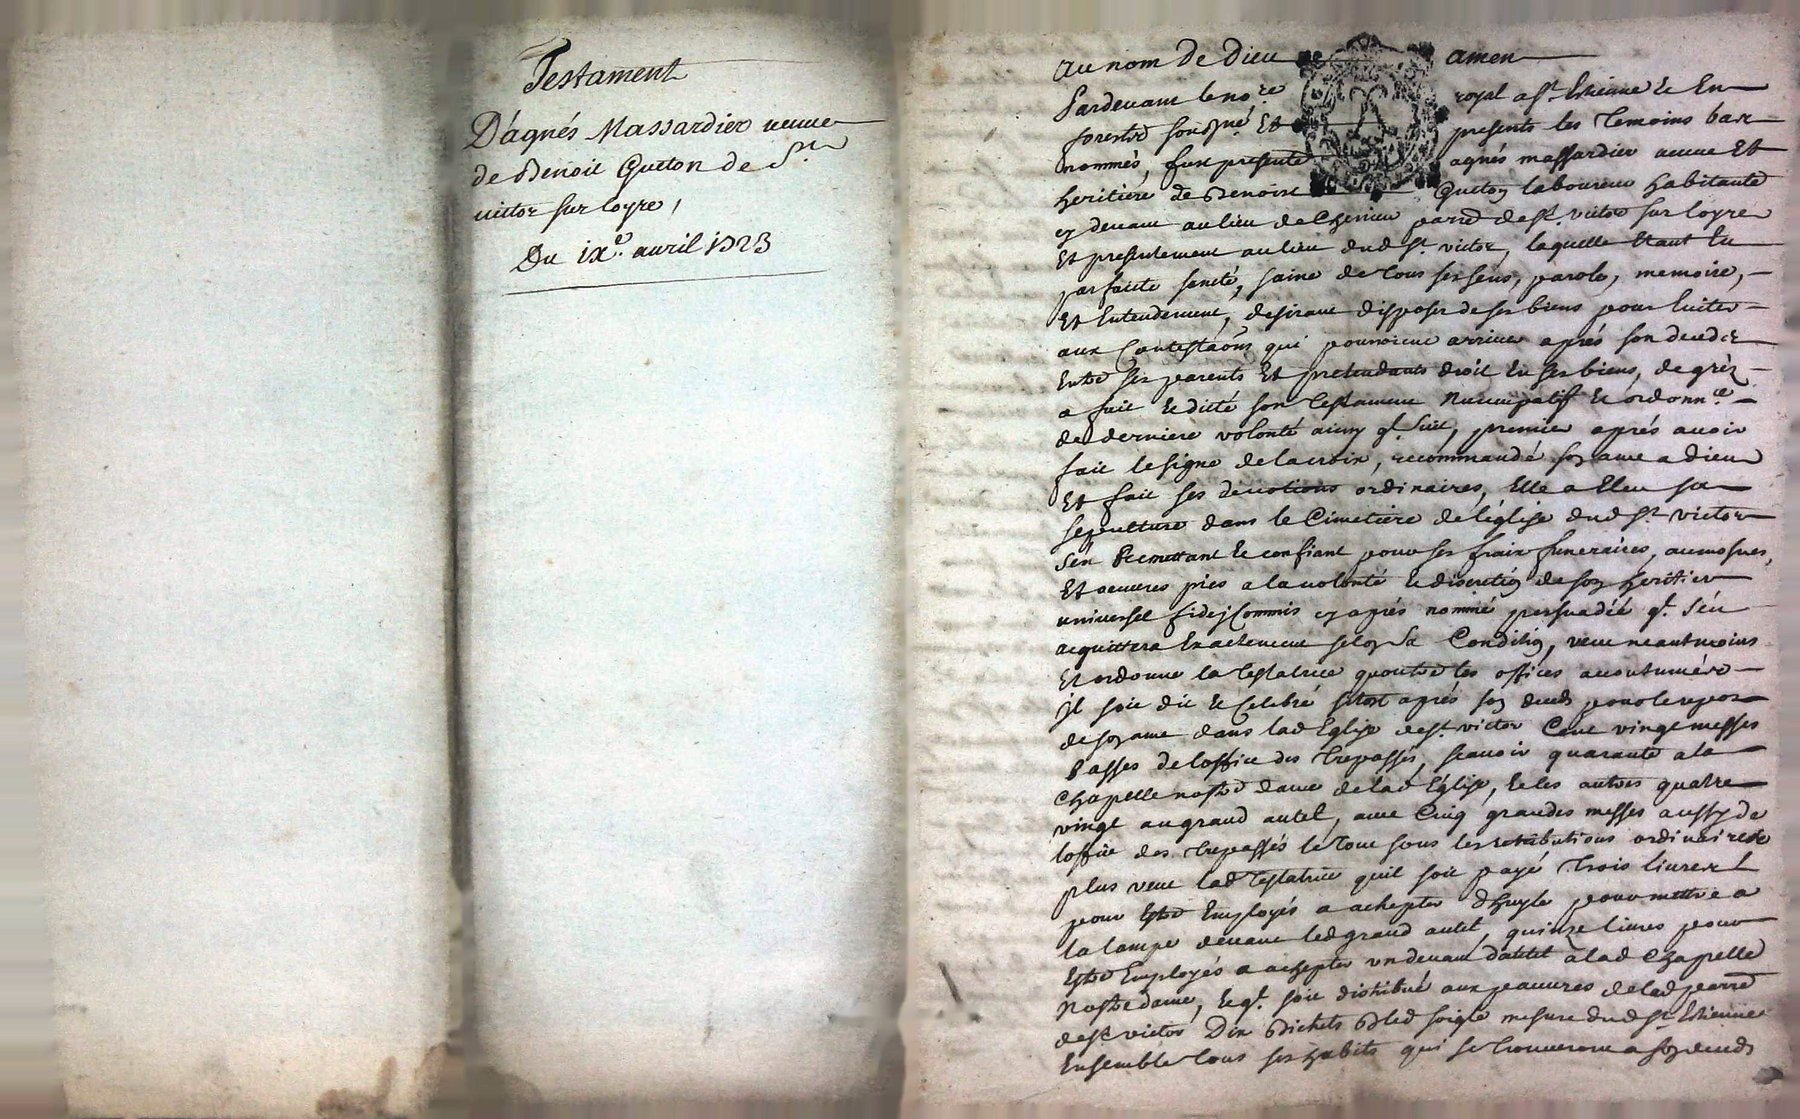 Testament
D'agnés Massardier veuve
de Benoit Queton de St
victor sur loyre,
Du ixe. avril 1723
au nom de Dieu amen
Pardevant le nore royal a St Estienne et En
forestz sousigné Et presents les temoins bas
nommés, fut presente agnés massardier veuve Et
heritiere de Benoist Queton laboureur habitante
cy devant au lieu de parre de St victor sur loyre
Et presentement au lieu dud St victor, laquelle Etant En
parfaite santé, saine de tous ses sens, parole, memoire,
Et Entendement, desirant disposer de ses biens pour Eviter
aux Contestaons qui pourroient arriver aprés son decedz
Entre ses parents Et pretendants droit En ses biens, de gréz
a fait Et dicté son testament Nuncupatif Et ordonnce
de derniere volonté ainsy qt suit, premier aprés avoir
fait le signe de la croix, recommandé son ame a Dieu
Et fait ses devotions ordinaires, Elle a Eleu sa
sepulture dans le Cimetiere de l'église dud St victor
s'én Remettant Et confiant pour ses fraix funeraires, aumosnes,
Et oeuvres pies a la volonté Et discretion de son heritier
universel fideycommis cy aprés nommé persuadée qt s'én
acquittera Exactement selon sa Condition, veut neantmoins
Et ordonne la testatrice qu'outre les offices accoutumés
il soit dit Et Celebré sitost aprés son deceds pour le repos
de son ame dans lad Eglise de St victor Cent vingt messes
basses de l'office des trepassés, scavoir quarante a la
Chapelle nostre dame de lad Eglise, Et les autres quatre
vingt au grand autel, avec Cinq grandes messes aussy de
l'office des trepassés le tout sous les retributions ordinaires de
plus veut lad testatrice qu'il soit payé trois livres
pour Estre Employés a achepter d'huyle pour mettre a
la lampe devant led grand autel, quinze livres pour
Estre Employés a achepter un devant d'autel a lad Chapelle
Nostre dame, Et qt soit distribué aux pauvres de lad parre
de St victor Dix Bichets Bled soigle mesure dud St Estienne
Ensemble tous ses habits qui se trouveront a son deceds